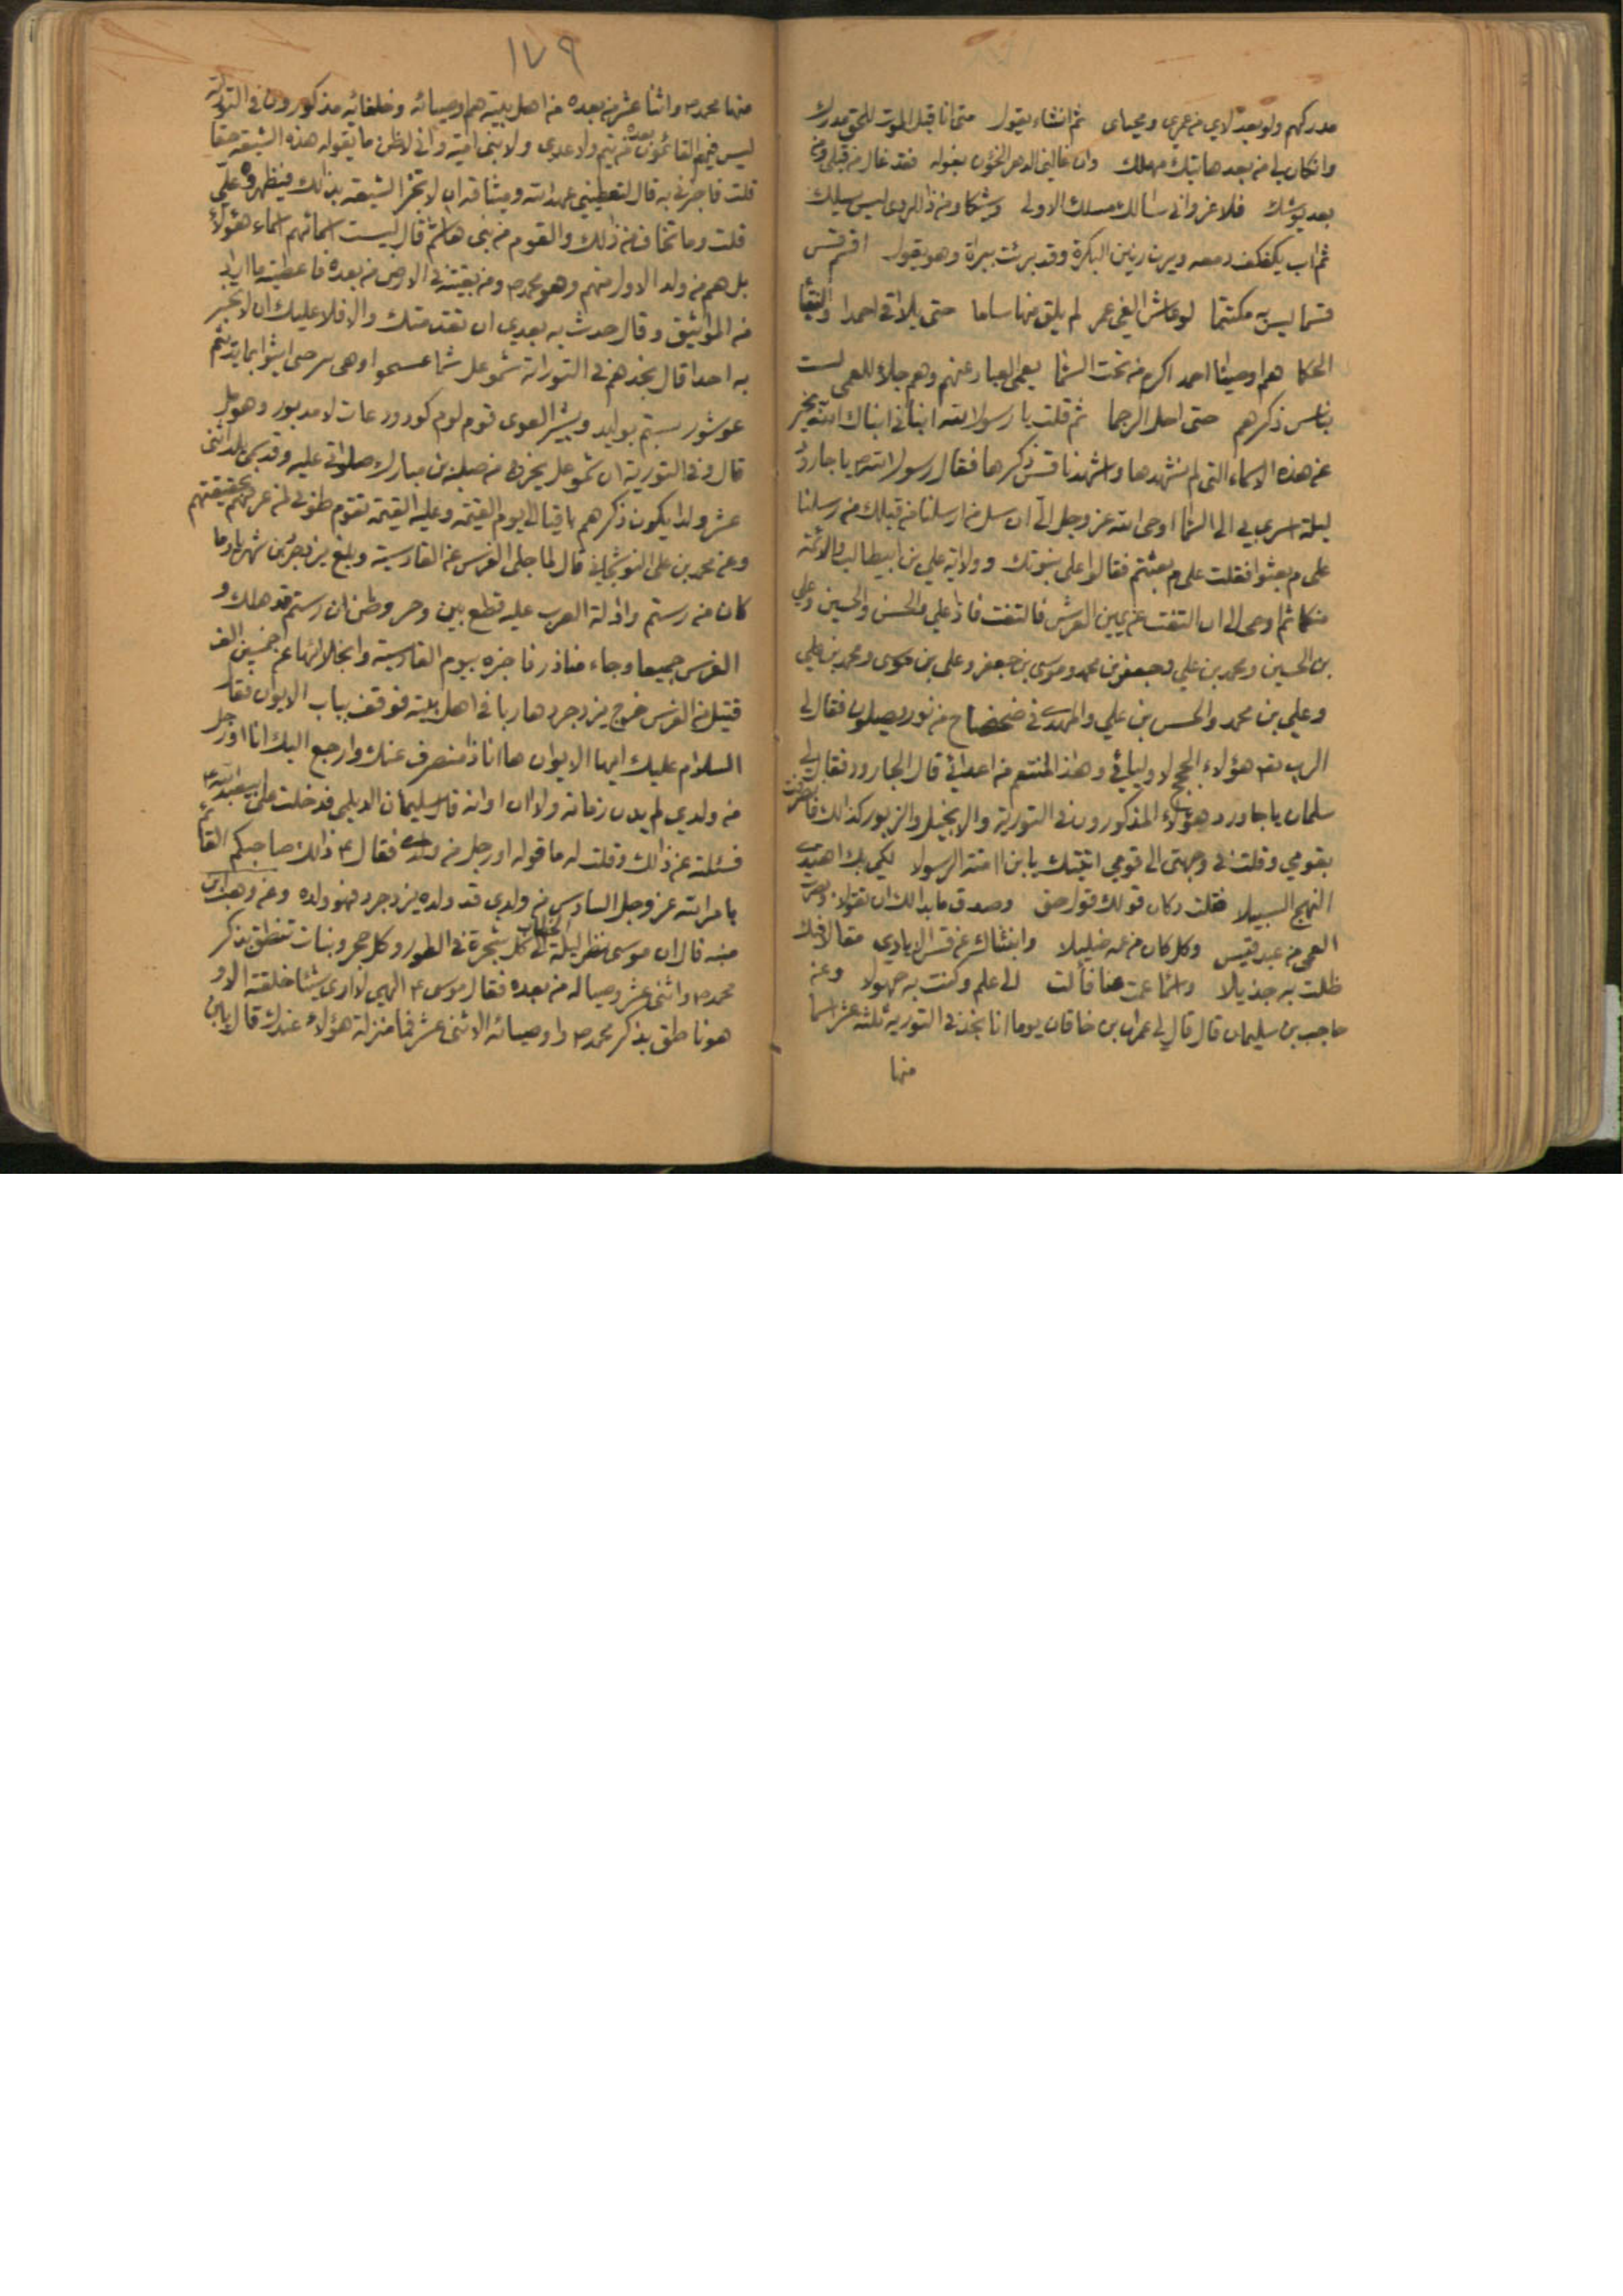 مدركهم ولو بعد لاي من عمري ومحياى ثم انشاء يقول متى انا قبل الموت للحق مدرك
وانكان لي من بعد هاتيك مهلك وان غالني الدهر الخؤن بغوله فقد غال من قبلي ومن
بعد يوشك فلا غرو اني سالك مسلك الاولى وشيكا ومن ذا للردى ليس يسلك
ثم اب يكفكف دمعه ويرن رنين البكرة وقد برئت ببراة وهو يقول اقسم قس
قسما ليس به مكتتما لو عاش الفي عمر لم يلق منها ساما حتى يلاقي احمدا والنقبا
الحكما هم اوصيا احمد اكرم من تحت السما يعمى العباد عنهم وهم جلاء للعمى لست
بناس ذكرهم حتى احل الرجما ثم قلت يا رسول الله انباني انباك الله بخبر
عن هذه الاسماء التي لم نشهدها واشهدنا قس ذكرها فقال رسول الله ص يا جارود
ليلة اسري بي الى السما اوحى الله عز وجل الي ان سل من ارسلنا من قبلك من رسلنا
على م بعثوا فقلت على م بعثتم فقالوا على نبوتك وولاية علي بن ابيطالب والائمة
منكما ثم اوحى الى ان التفت عن يمين العرش فالتفت فاذا علي والحسن والحسين وعلي
بن الحسين ومحمد بن علي وجعفر بن محمد وموسى بن جعفر وعلى بن موسى ومحمد بن علي
وعلي بن محمد والحسن بن علي والمهدى في ضحضاح من نور يصلون فقال لي
الرب تع هؤلاء الحجج لاوليائي وهذا المنتقم من اعدائي قال الجارود فقال لي
سلمان يا جاورد هؤلاء المذكورون في التورية والانجيل والزبور كذالك فانصرفت
بقومي وقلت في وجهتى الى قومي اتيتك يا بن امنة الرسولا لكي بك اهتدى
النهج السبيلا فقلت وكان قولك قول حق وصدق ما بدا لك ان تقولا وبصرت
العمى من عبد قيس وكل كان من عمه ضليلا وانبئناك عن قس الايادي مقالا فيك
ظلت به جذيلا واسما عمت عنا فآلت الى علم وكنت به جهولا وعن
حاجب بن سليمان قال قال لي عمران بن خاقان يوما انا نجد في التورية ثلثة عشر اسما
منها
١٧٩
منها محمد ص واثنا عشر من بعده من اهل بيته هم اوصيائه وخلفائه مذكورون في التورية
ليس فيهم القائمون بعده من تيم ولا عدى ولا بنى امية واني لاظن ما يقوله هذه الشيعة حقا
قلت فاخبرني به قال لتعطيني عهد الله وميثاقه ان لا تخبر الشيعة بذالك فيظهروه علي
قلت وما تخاف من ذلك والقوم من بنى هاشم قال ليست اسمائهم اسماء هؤلاء
بل هم من ولد الاول منهم وهو محمد ص ومن بقيته في الارض من بعده فاعطيته ما اراد
من المواثيق وقال حدث به بعدي ان تقدمتك والا فلا عليك ان لا تخبر
به احدا قال نجدهم في التوراة شموعل شما عسحوا وهى سرحى ايشوا بما يد يثم
عوشور سبتم بوليد وبشير العوى قوم لوم كودود عات لامدبور وهومل
قال وفي التورية ان شموعل يخرج من صلبه بن مبارك صلواتي عليه وقدسي يلد اثنى
عشر ولدا يكون ذكرهم باقيا الى يوم القيمة وعليه القيمة تقوم طوبى لمن عرفهم بحقيقتهم
وعن محمد بن على النوشجاني قال لما جلى الفرس عن القادسية وبلغ يزدجرد بن شهريار ما
كان من رستم وادلة العرب عليه قطع بين وحر وظن ان رستم قد هلك و
الفرس جميعا وجاء مناذر فاخبره بيوم القادسية وانجلائها عن خمسين الف
قتيل من الفرس خرج يزدجرد هاربا في اهل بيته فوقف بباب الايوان فقال
السلام عليك ايها الايوان ها انا ذا منصرف عنك وارجع اليك انا او رجل
من ولدي لم يدن زمانه ولا ان اوانه قال سليمان الديلمي فدخلت على ابي عبد الله ع
فسئلته عن ذالك وقلت له ما قوله او رجل من ولدى فقال ع ذالك صاحبكم القائم
بامر الله عز وجل السادس من ولدى قد ولده يزدجرد فهو ولده وعن وهب بن
منبه قال ان موسى نظر ليلة الخطاب الى كل شجرة في الطور وكل حجر ونبات تنطق بذكر
محمد ص واثنى عشر وصيا له من بعده فقال موسى ع الهي لا ارى شيئا خلقته الا و
هو ناطق بذكر محمد ص واوصيائه الاثنى عشر فما منزلة هؤلاء عندك قال يا بن